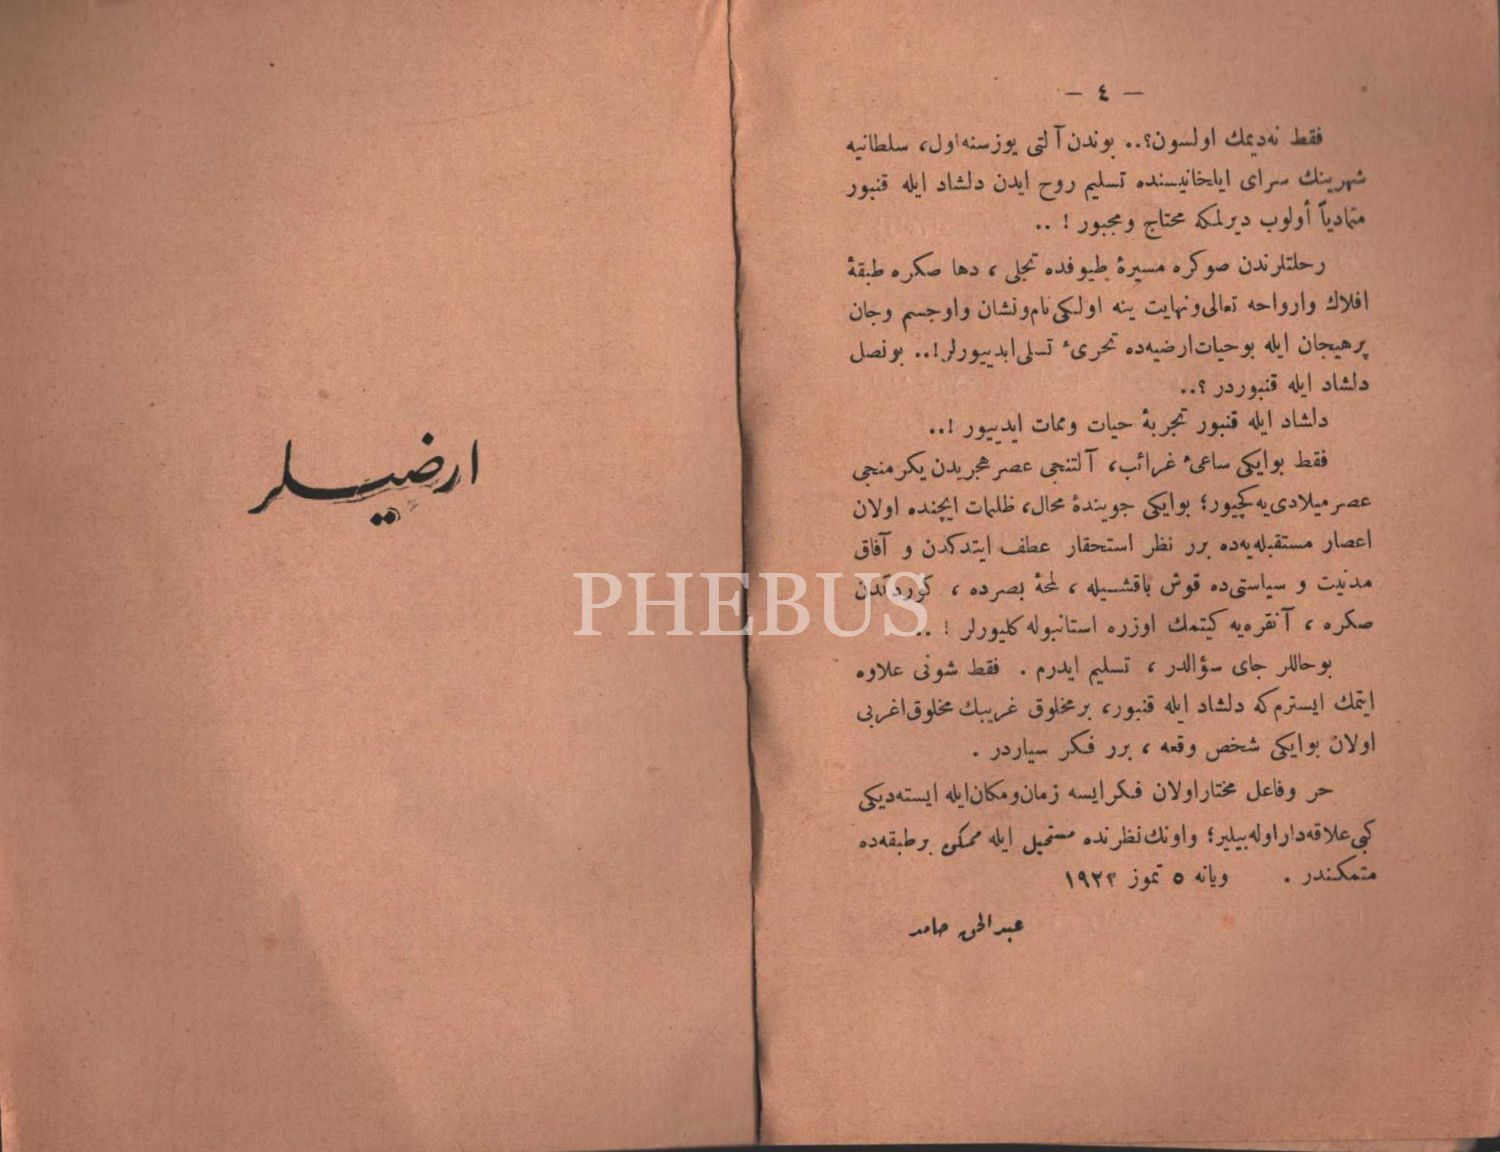 — ٤ —
فقط نه‌دیمك اولسون؟.. بوندن آلتی یوز سنه اول، سلطانیه
شهرینك سرای ایلخانیسنده تسلیم روح ایدن دلشاد ایله قنبور
متمادیاً أولوب دیرلمكه محتاج و مجبور ! ..
رحلتلرندن صوكره مسیرهٔ طیوفده تجلی ، دها صكره طبقهٔ
افلاك وارواحه تعالی ونهایت ینه اولكی نام ونشان واوجسم وجان
پرهیجان ایله بوحیات ارضیه‌ده تحریٔ تسلی ایدییورلر!.. بونصل
دلشاد ایله قنبوردر ؟..
دلشاد ایله قنبور تجربهٔ حیات وممات ایدییور !..
فقط بوایكی ساعیٔ غرائب، آلتنجی عصر هجریدن یكرمنجی
عصر میلادی‌یه كچیور؛ بوایكی جویندهٔ محال، ظلمات ایچنده اولان
اعصار مستقبله‌یه‌ده برر نظر استحقار عطف ایتدكدن و آفاق
مدنیت و سیاستی‌ده قوش باقشیله ، لمحهٔ بصرده ، كوردكدن
صكره ، آنقره‌یه كیتمك اوزره استانبوله كلیورلر ! ..
بوحاللر جای سؤالدر ، تسلیم ایدرم . فقط شونی علاوه
ایتمك ایسترم كه دلشاد ایله قنبور، برمخلوق غریبك مخلوق اغربی
اولان بوایكی شخص وقعه ، برر فكر سیاردر .
حر وفاعل مختار اولان فكر ایسه زمان ومكان ایله ایسته‌دیكی
كبی علاقه‌دار اوله‌بیلیر؛ واونك نظرنده مستحیل ایله ممكن برطبقه‌ده
متمكندر . ویانه ٥ تموز ١٩٢٢
عبدالحق حامد
ارضیلر
PHEBUS